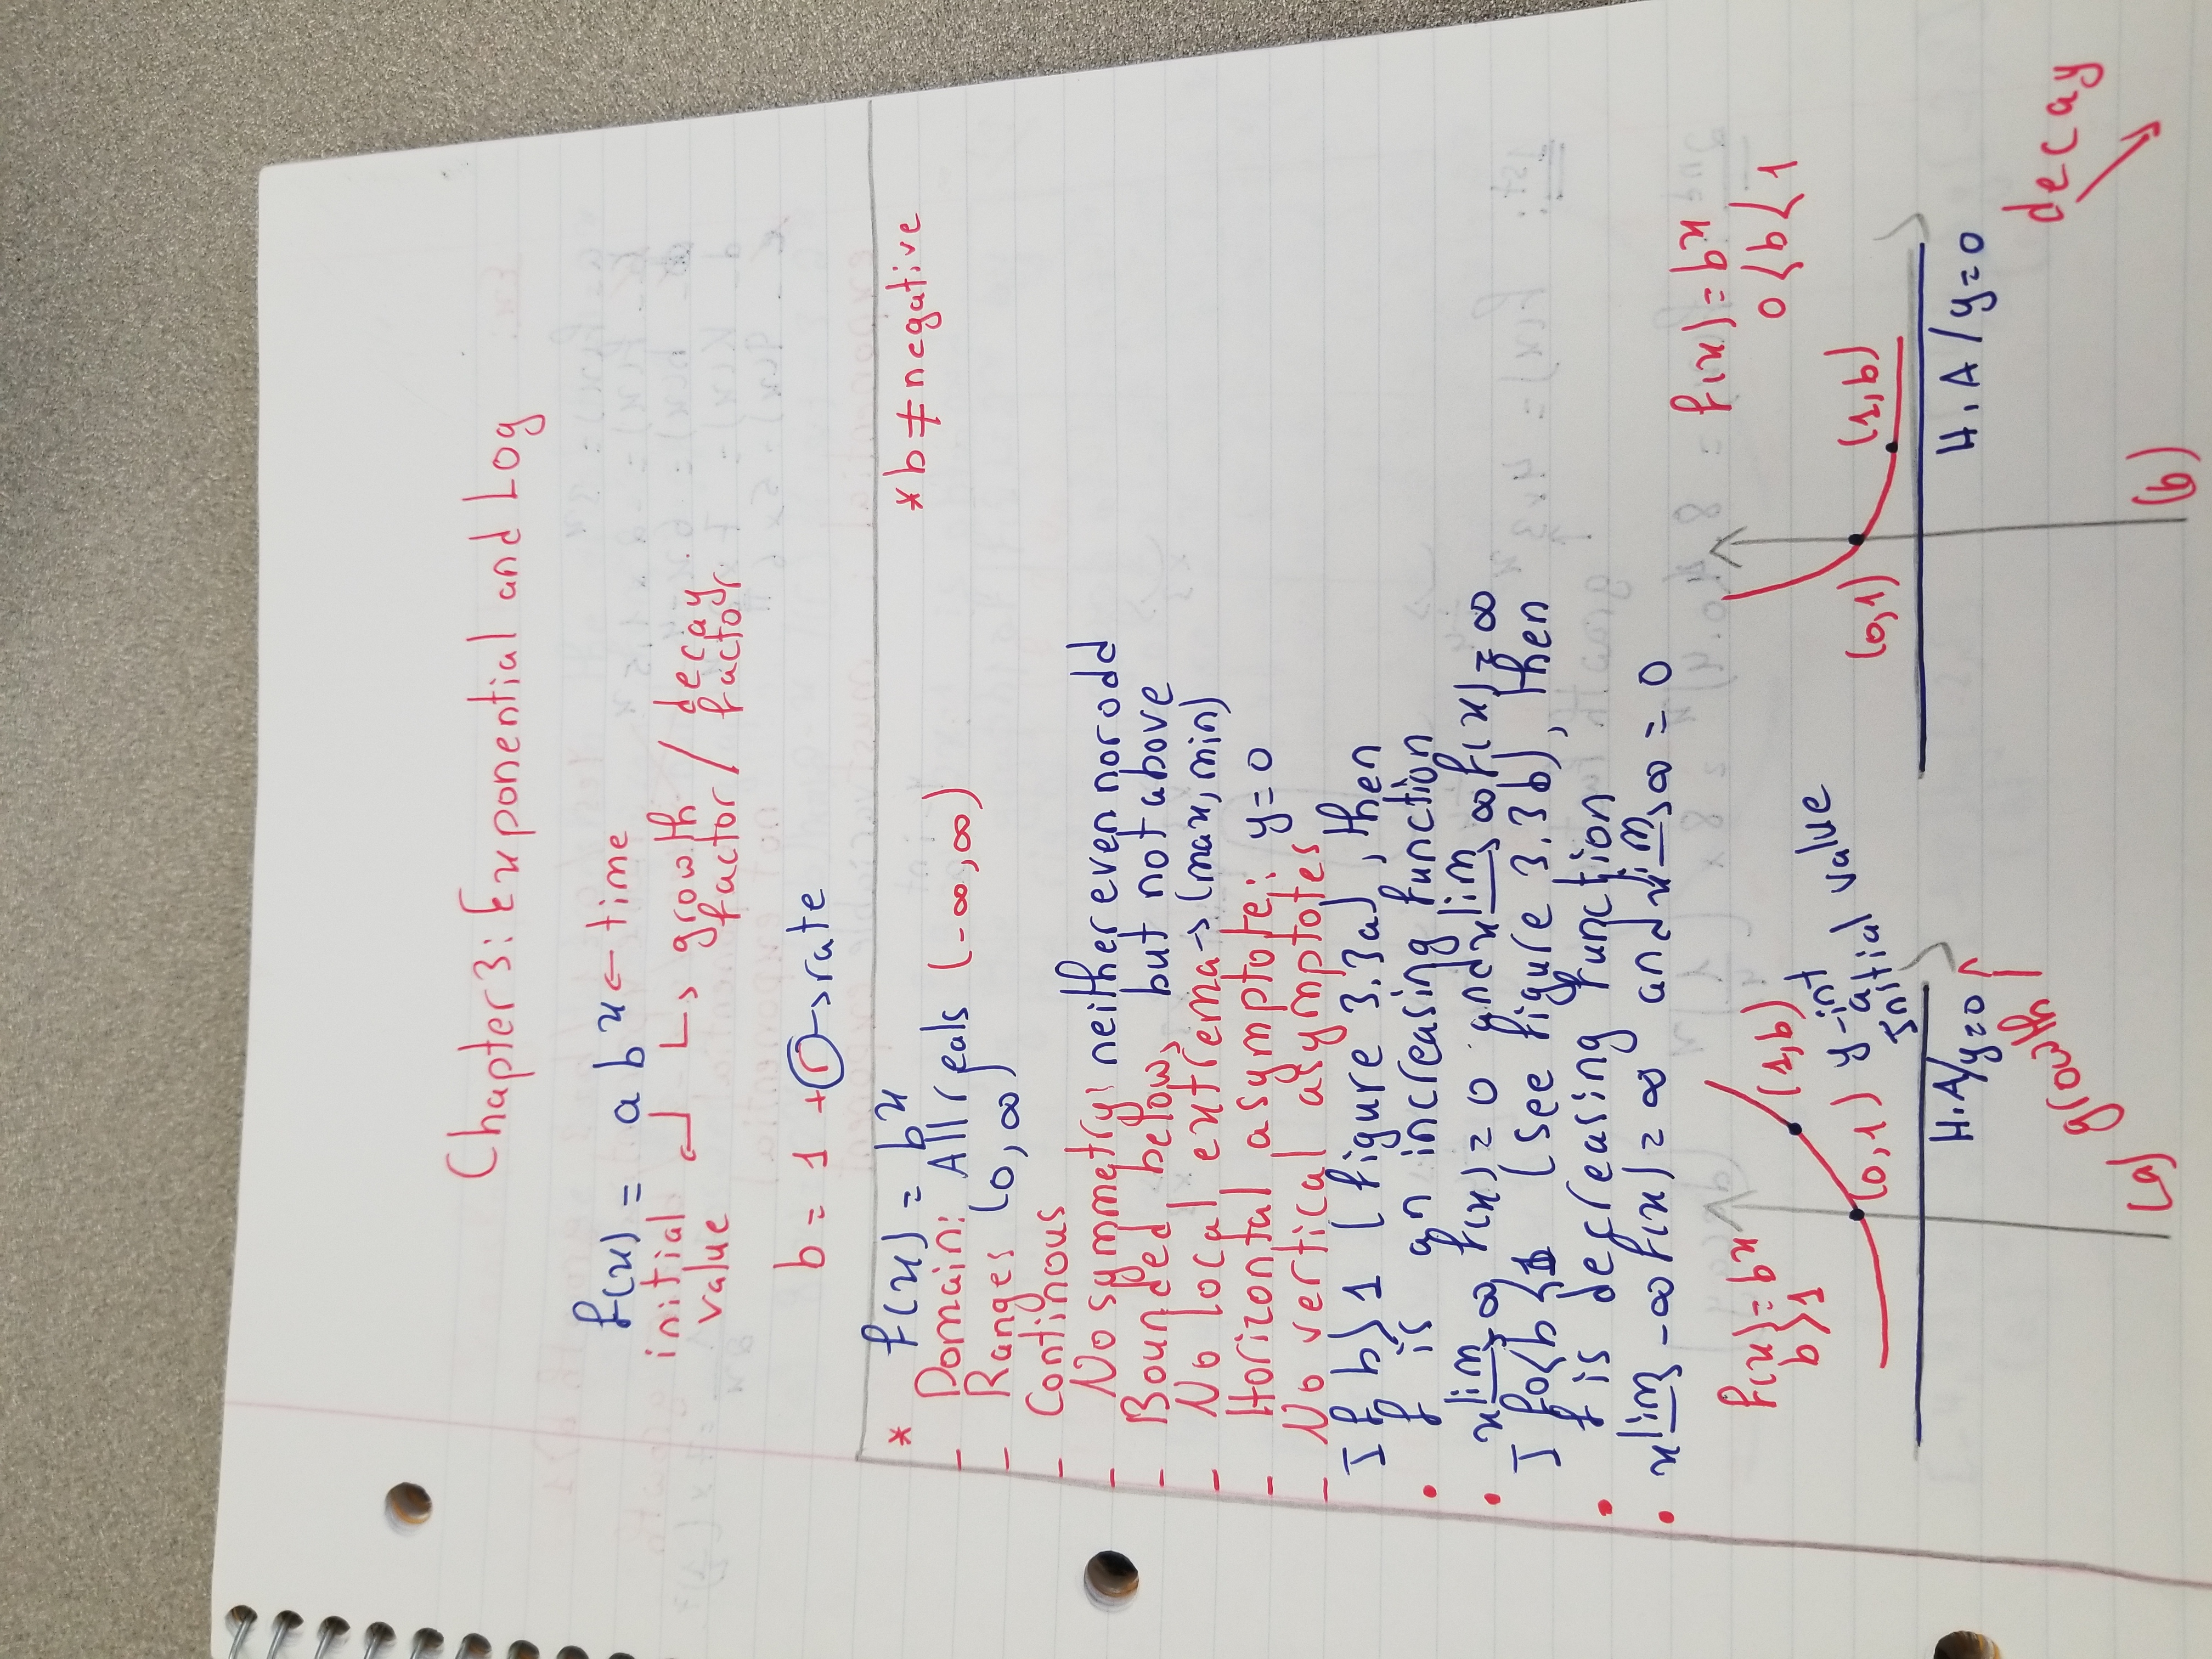 Chapter 3: Exponential and Log
f(x) = a b x ← time
initial ↵ ↳ growth / decay
value factor / factor
b = 1 + r → rate
* f(x) = b x *b ≠ negative
- Domain: All reals (-∞,∞)
- Ranges (0,∞)
- Continous
- No symmetry: neither even nor odd
- Bounded below, but not above
- No local extrema → (max, min)
- Horizontal asymptote: y=0
- No vertical asymptotes
If b>1 (figure 3.3a), then
• f is an increasing function
• x lim → -∞ f(x) = 0 and x lim → ∞ f(x) = ∞
If 0<b<1 (see figure 3.3b), then
• f is defreasing function
• x lim → -∞ f(x) = ∞ and x lim → ∞ = 0
f(x) = b x
b>1
(1,b)
(0,1) y-int
initial value
H.A/y=0
growth
(a)
f(x) = b x
0<b<1
(0,1)
(1,b)
H.A/y=0
decay
(b)